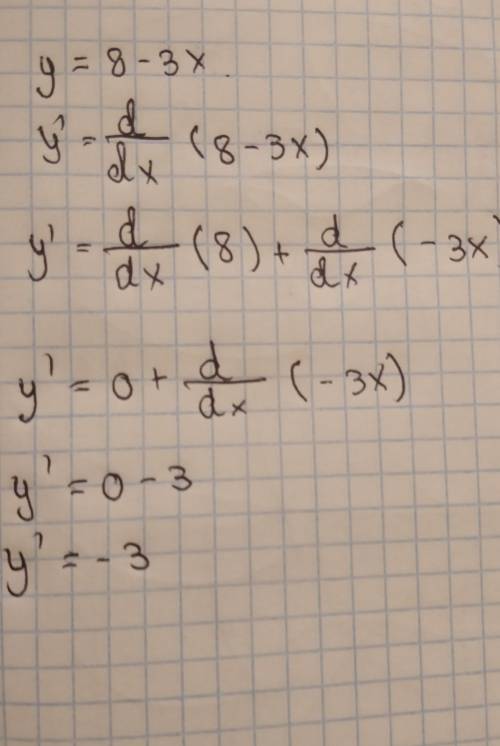 y = 8 - 3x.
y' = d/dx (8 - 3x)
y' = d/dx (8) + d/dx (- 3x)
y' = 0 + d/dx (- 3x)
y' = 0 - 3
y' = - 3